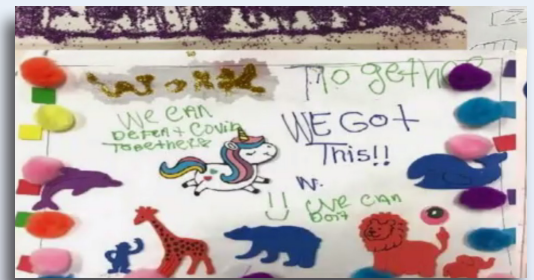 WORK Together
WE CAN
Defent Covid
Togethers
WE GOt
This!!
W.
WE CAN
DOIT